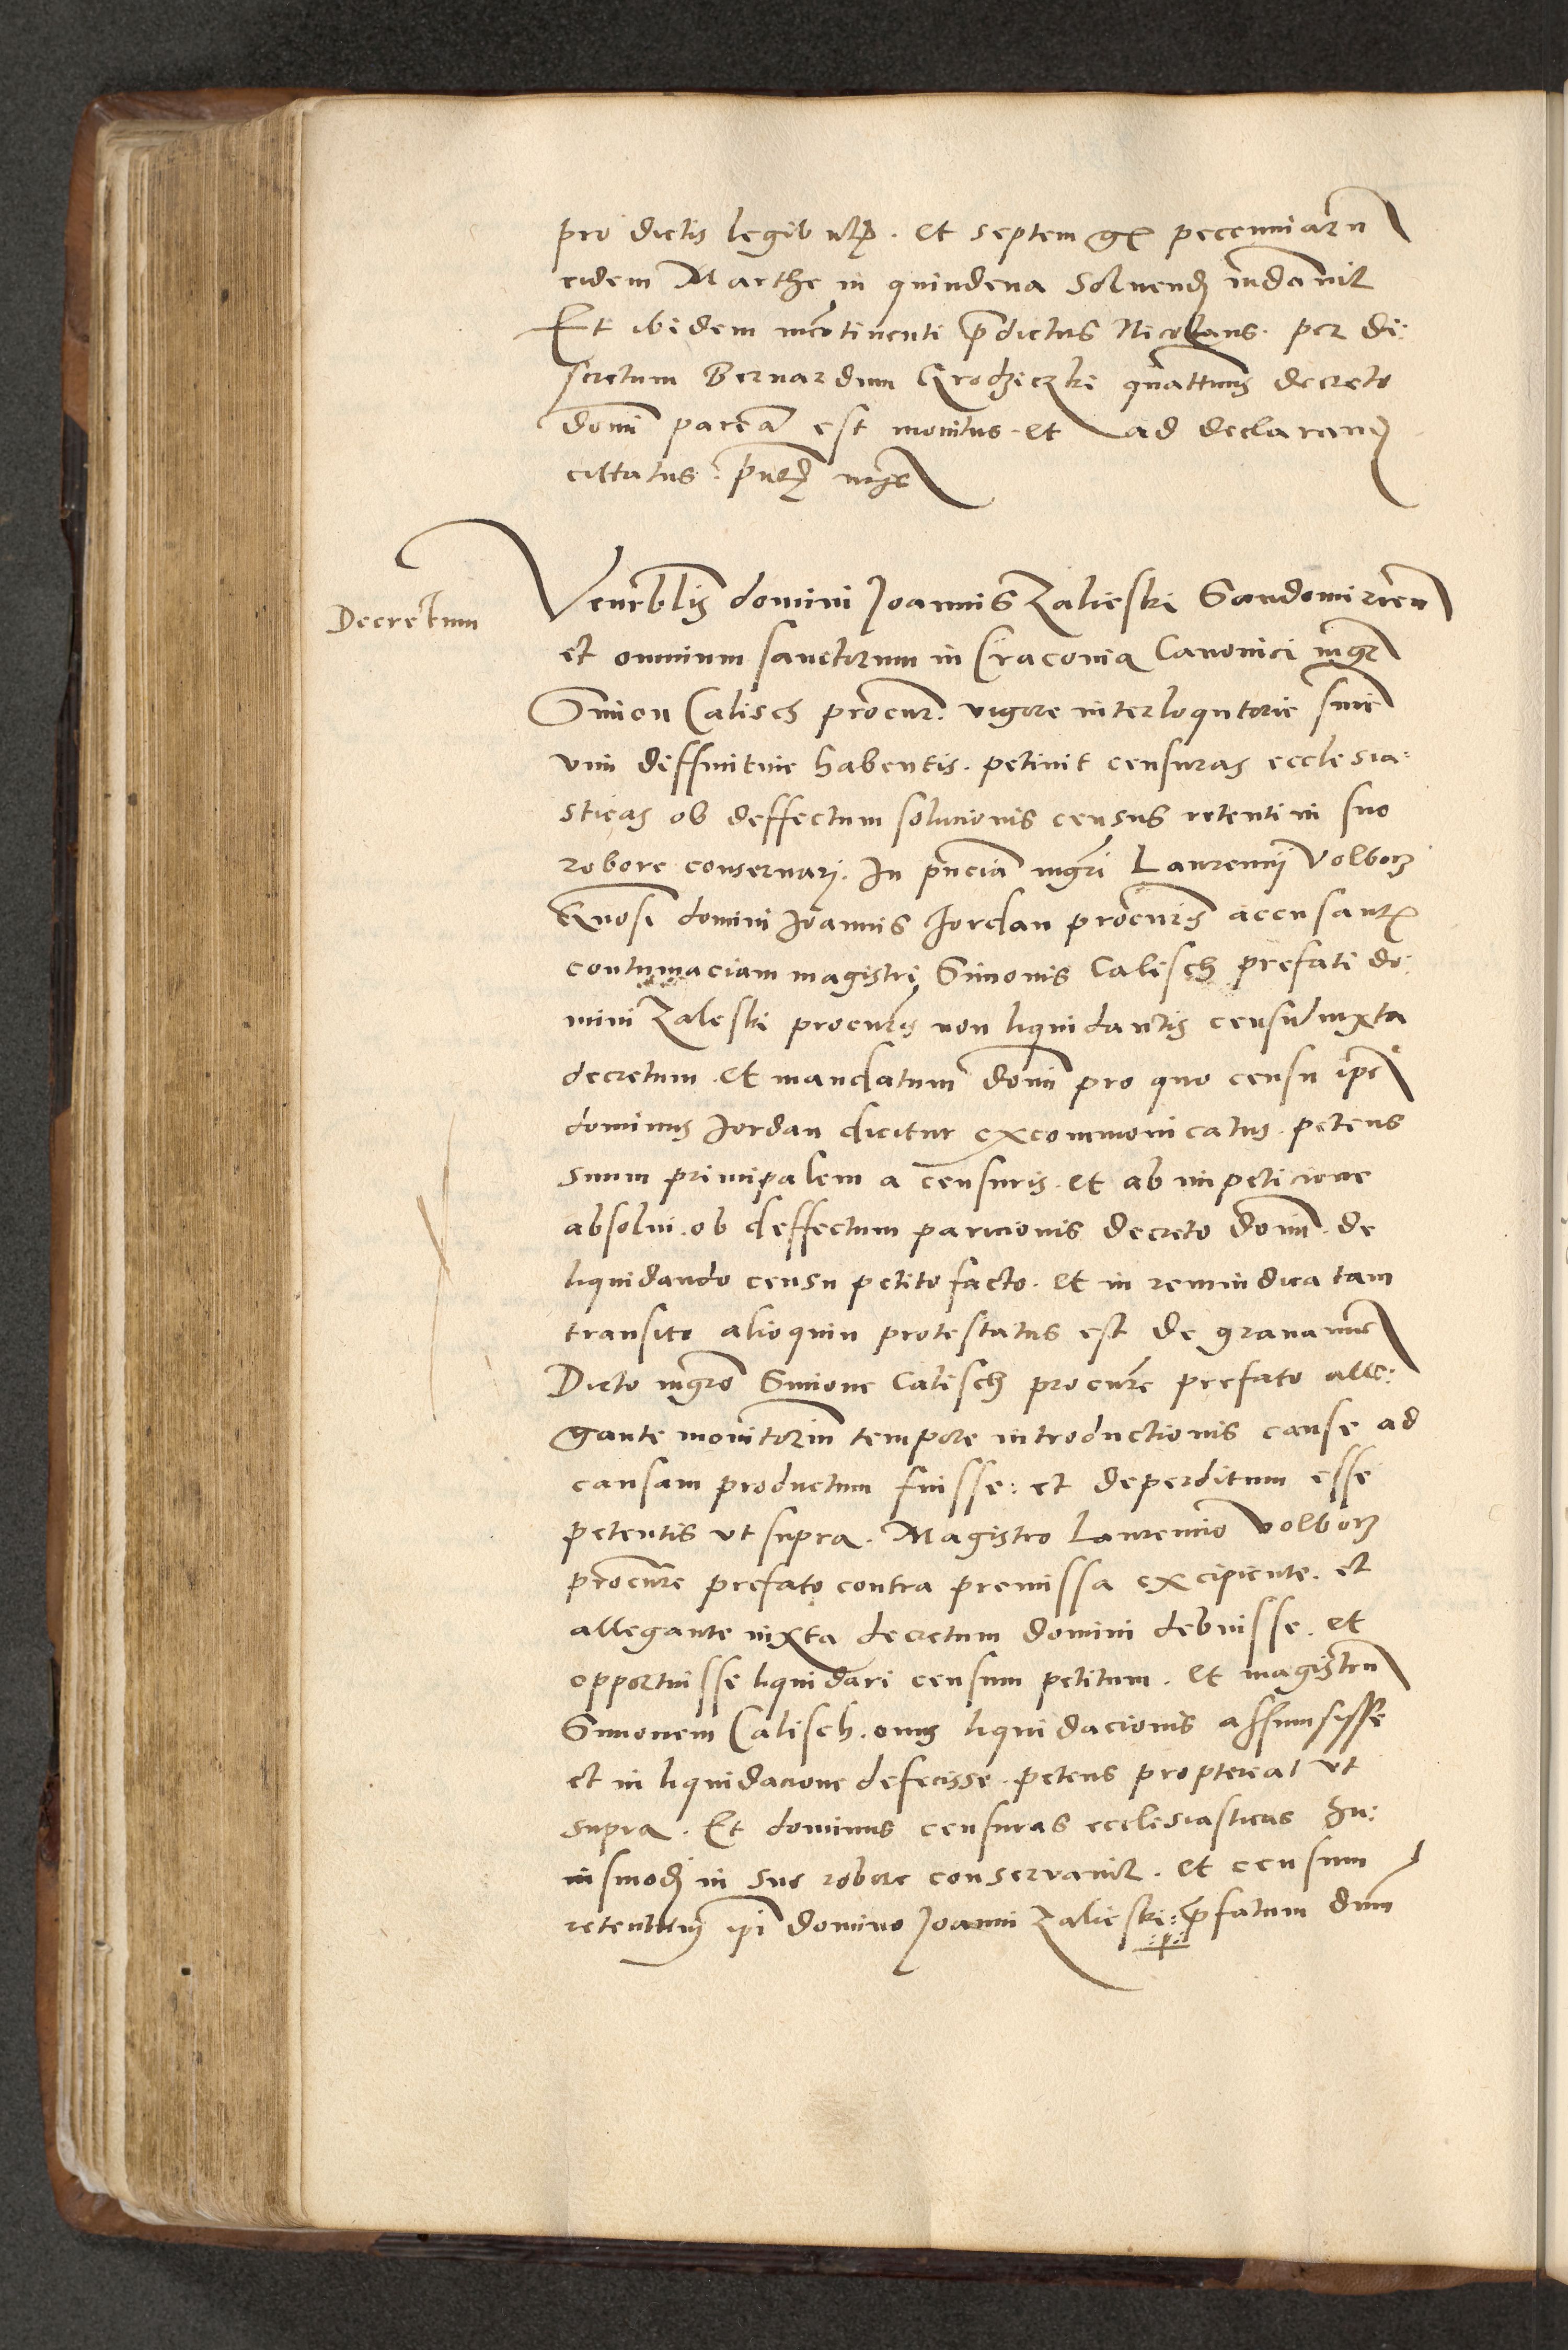 pro dictis legib et septem gr pecuniaru
eidem Marthe in quindena soluend mdauit
Et ibidem incotinenti pdictus Nicolaus. per di:
scretum Bernardum Grodzieczki quattinus decreto
domi pareat est monitus et ad declarand
cittatus. pntt
Decretum
Venerblis domini Joannis Zalieski Sandomirien
et omnium sanctorum in Craconia Canonici mgr
Simon Calisch procur. vigore interloqutorie snie
vim diffinitiue habentis. petiuit censuras ecclesia:
sticas ob deffectum solucionis census retenti in suo
robore conseruarj. In pncia mgri Laurencij Volborz
Gnosi domini Joannis Jordan procuris accusant
contumaciam magistri Simonis Calisch prefati do:
mini Zaleski procuris non liquidantis censu iuxta
decretum et mandatum domi pro quo censu ipe
dominus Jordan dicitur excommonicatus. petens
suum principalem a censuris et ab impeticione
absolui. ob deffectum paricionis decreto domi. de
liquidando censu petito facto. et in rem iudicatam
transito alioquin protestatus est de grauamie
Dicto mgro Simone Calisch procure prefato alle:
gante monitorium tempore introductionis cause ad
causam productum fuisse: et deperditum esse
petentis vt supra. Magistro Laurencio Volborz
procure prefato contra premissa excipiente. et
allegante iuxta decretum domini debuisse. et
opportuisse liquidari censum petitum. et magistru
Simonem Calisch. onus liquidacionis assumsysse
et in liquidacione defecisse. petens propterea vt
supra. Et dominus censuras ecclesiasticas hu:
iusmodj in suo robore conseruauit. et censum
retentum ipi domino Joanni Zalieski: pfatum dnm
:p: